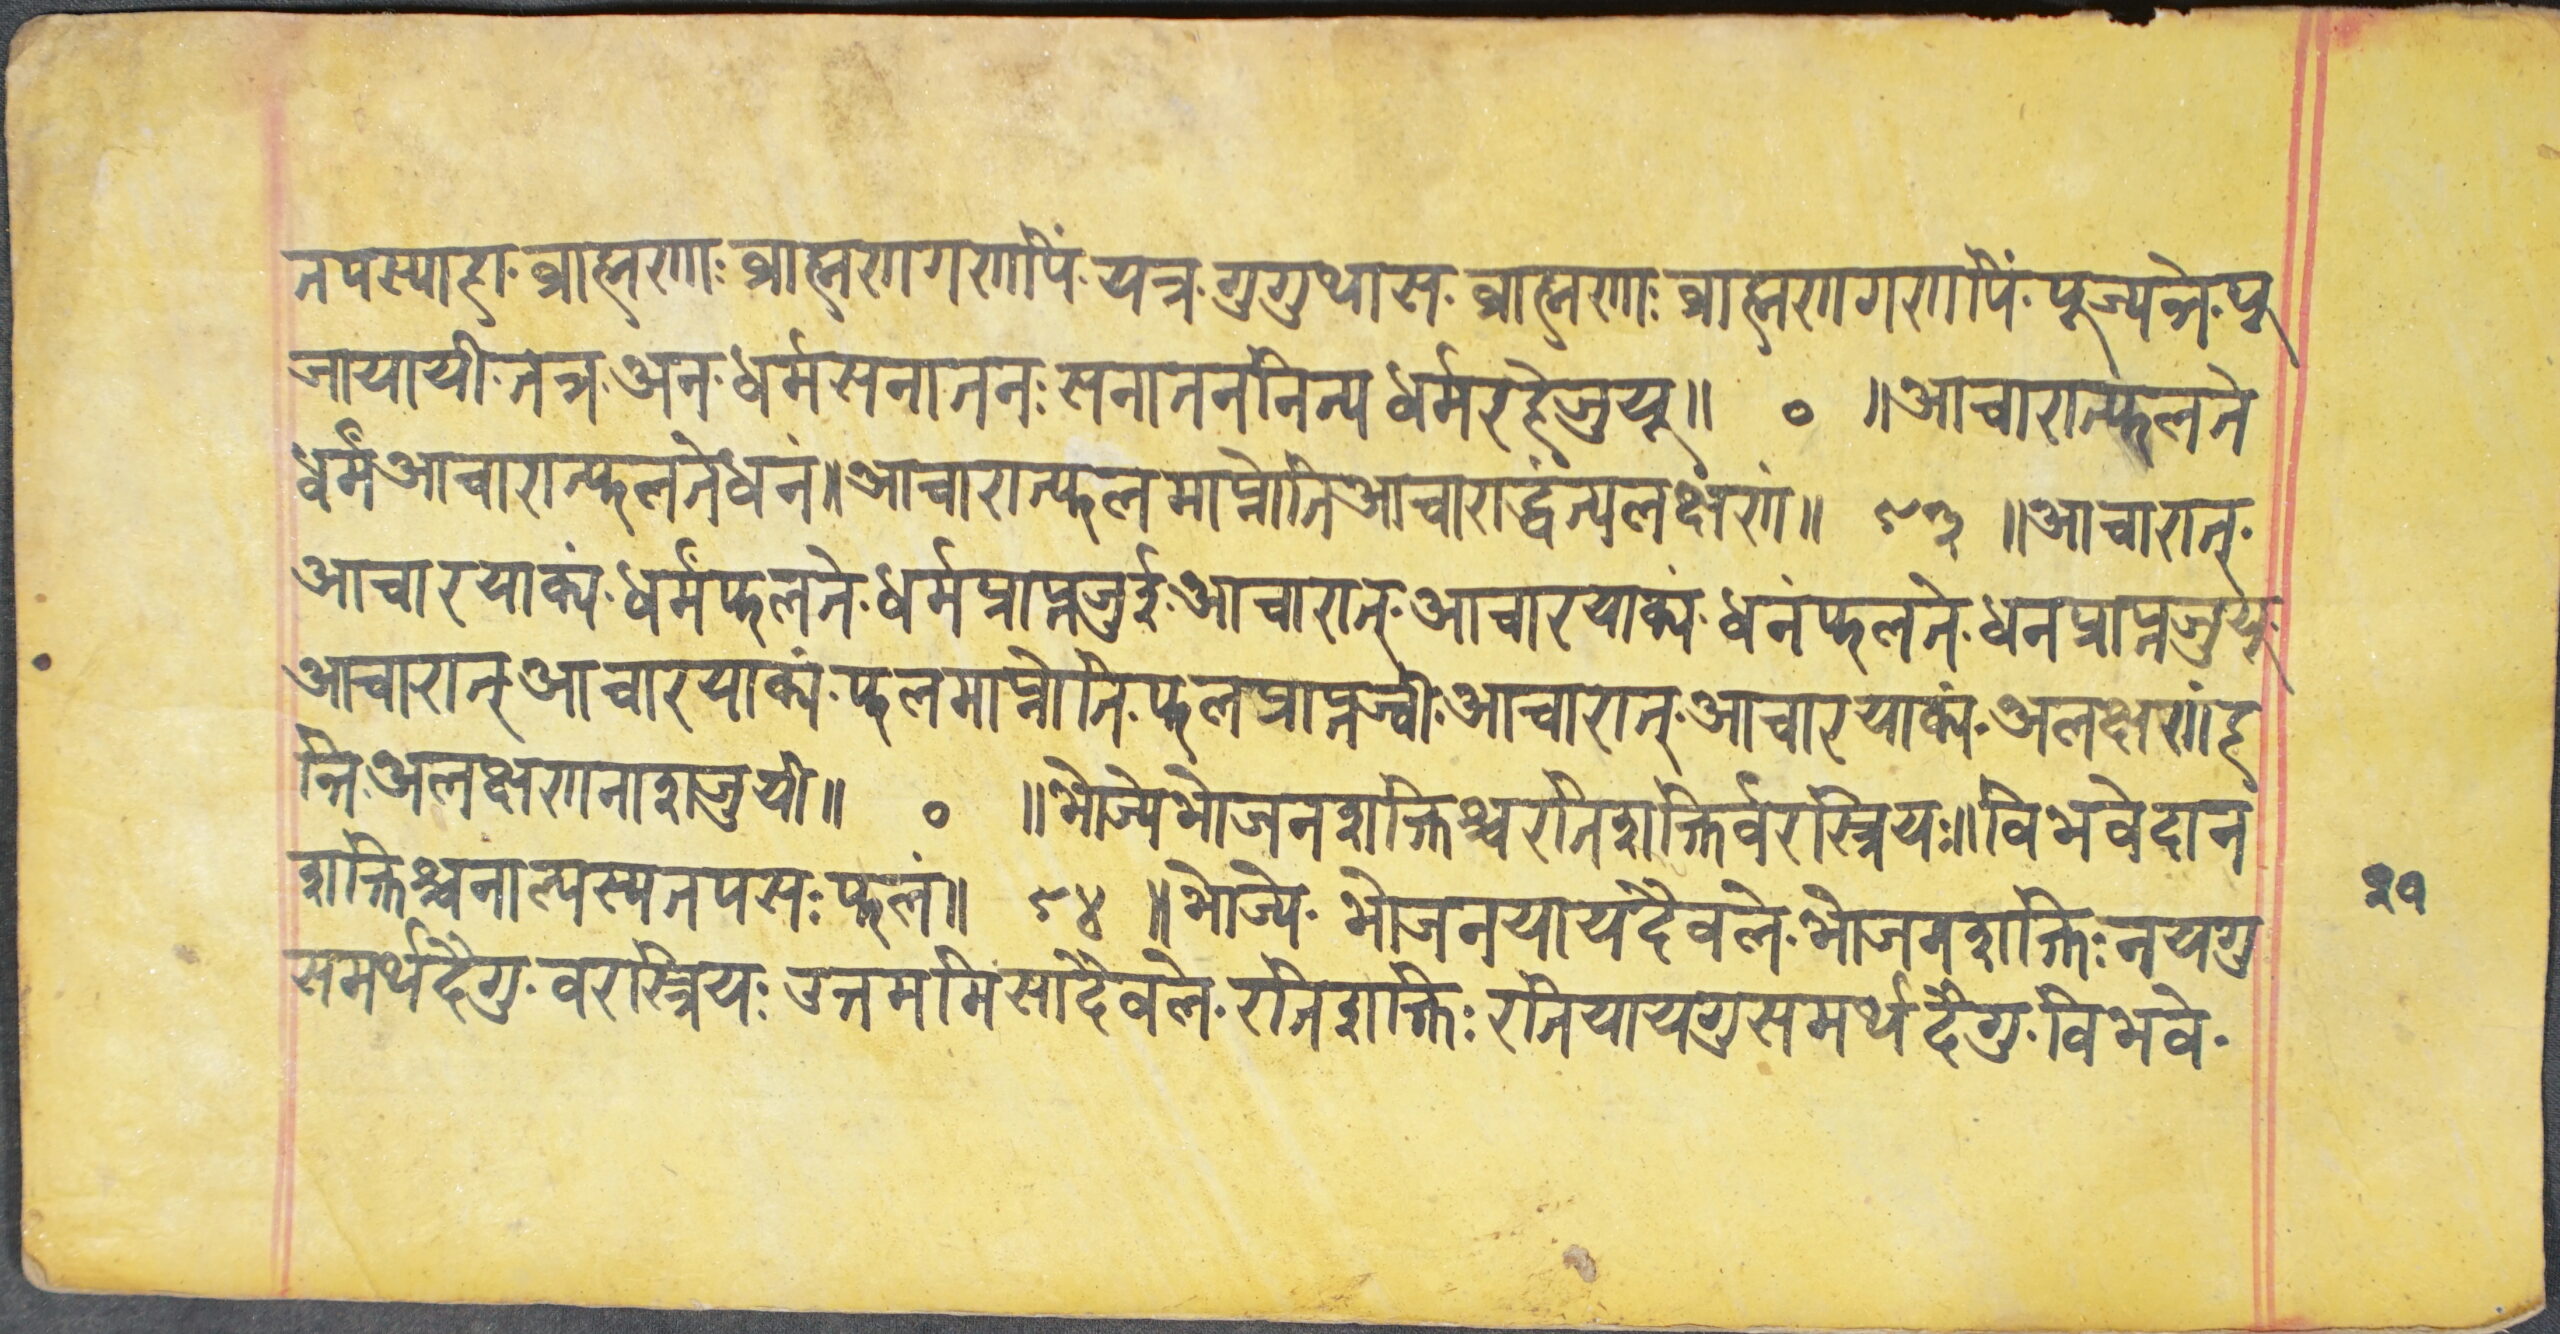 तपस्याहा॰ ब्राह्मणाः ब्राह्मणागणापिं॰ यत्र॰ गुगुथास॰ ब्राह्मणाः ब्राह्मणागणापिं॰ पूज्यन्ते॰ पू
जायायी॰ तत्र॰ अन॰ धर्मसनातनः सनातननित्य धर्मरहेजुयू॥ ० ॥आचारात्फलते
धर्मंआचारात्फलतेधनं॥आचारात्फलमाप्नोतिआचाराद्धंत्यलक्षंणं॥ ९३ ॥आचारात्॰
आचारयाक्यं॰ धर्मंफलते॰ धर्मप्राप्तजुई॰ आचारात्॰ आचारयाक्यं॰ धनंफलते॰ धनप्राप्तजुयू॰
आचारात् आचारयाक्यं॰ फलमाप्नोति॰ फलप्राप्तज्वी॰ आचारात्॰ आचारयाक्यं॰ अलक्षणांह
न्ति॰ अलक्षणनाशजुयी॰॥ ० ॥भोज्येभोजनशक्तिश्चरतिशक्तिर्वरस्त्रियः॥विभवेदानं
शक्तिश्चनाल्पस्यतपसः फलं॥ ९४ ॥भोज्ये॰ भोजनयायदैवले॰ भोजनशक्तिः नयगु
समर्थदैगु॰ वरस्त्रियः उत्तममिंसादैवले॰ रतिशक्तिः रतियायगुसमर्थदैगु॰ विभवे॰
२१